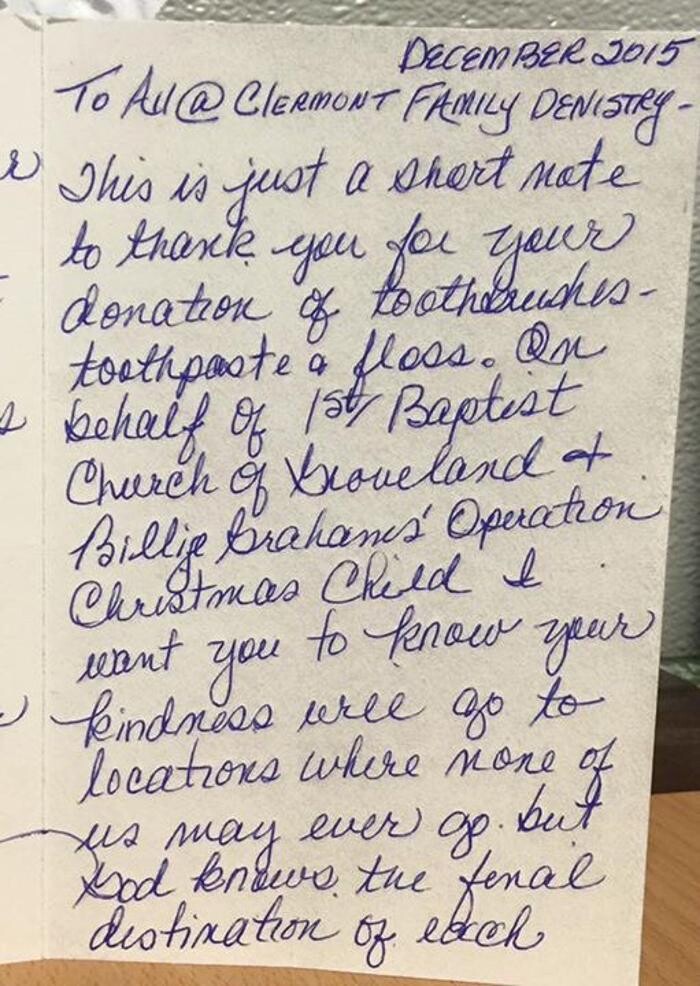 DECEMBER 2015
To All @ CLERMONT FAMILY DENISTRY-
This is just a short note
to thank you for your
donation of toothbrushes-
toothpaste & floss. On
behalf of 1st Baptist
Church of Groveland &
Billie Grahams' Operation
Christmas Child I
want you to know your
kindness will go to
locations where none of
us may ever go. but
God knows the final
destination of each